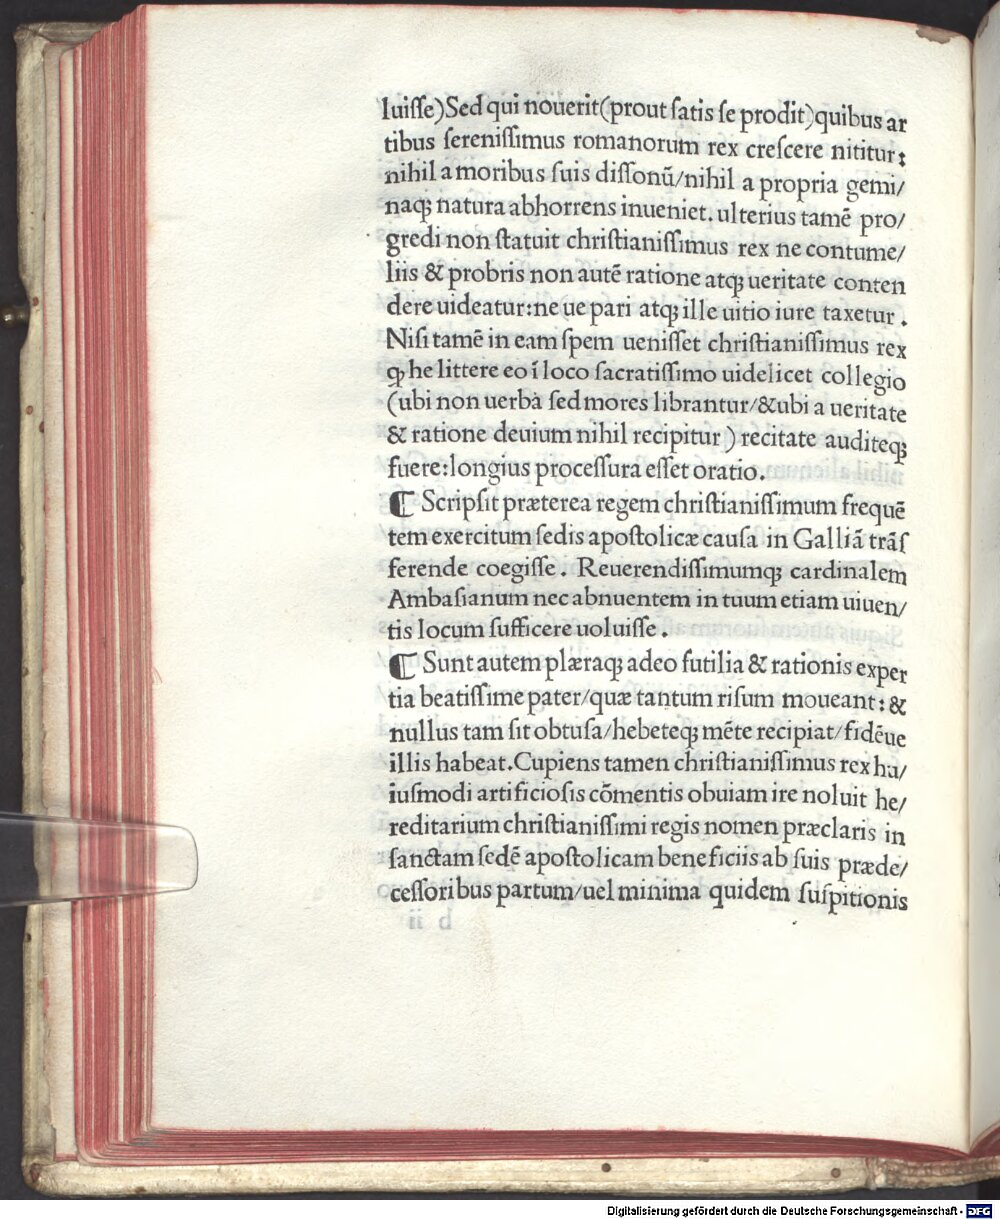 luiſſe)Sed qui nouerit(prout ſatis ſe prodit)quibus ar
tibus ſereniſſimus romanorum rex creſcere nititur:
nihil a moribus ſuis diſſonū/nihil a propria gemi/
naqꝫ natura abhorrens inueniet. ulterius tamē pro/
gredi non ſtatuit chriſtianiſſimus rex ne contume/
liis & probris non autē ratione atqꝫ ueritate conten
dere uideatur:ne ue pari atqꝫ ille uitio iure taxetur .
Niſi tamē in eam ſpem ueniſſet chriſtianiſſimus rex
ꝙ he littere eo ī loco ſacratiſſimo uidelicet collegio
(ubi non uerba ſed mores librantur/&ubi a ueritate
& ratione deuium nihil recipitur ) recitate auditeqꝫ
fuere:longius proceſſura eſſet oratio.
¶ Scripſit præterea regem chriſtianiſſimum frequē
tem exercitum ſedis apoſtolicæ cauſa in Galliā trāſ
ferende coegiſſe . Reuerendiſſimumqꝫ cardinalem
Ambaſianum nec abnuentem in tuum etiam uiuen/
tis locum ſufficere uoluiſſe .
¶ Sunt autem plæraqꝫ adeo futilia & rationis exper
tia beatiſſime pater/quæ tantum riſum moueant: &
nullus tam ſit obtuſa/hebeteqꝫ mēte recipiat/fidēue
illis habeat.Cupiens tamen chriſtianiſſimus rex hu/
iuſmodi artificioſis cōmentis obuiam ire noluit he/
reditarium chriſtianiſſimi regis nomen præclaris in
ſanctam ſedē apoſtolicam beneficiis ab ſuis præde/
ceſſoribus partum/uel minima quidem ſuſpitionis
Digitalisierung gefördert durch die Deutsche Forschungsgemeinschaft - DFG